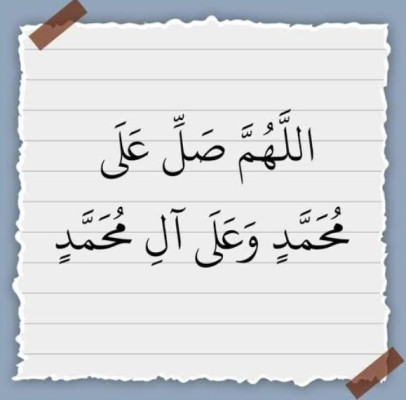 اللَّهُمَّ صَلِّ عَلَى
مُحَمَّدٍ وَعَلَى آلِ مُحَمَّدٍ